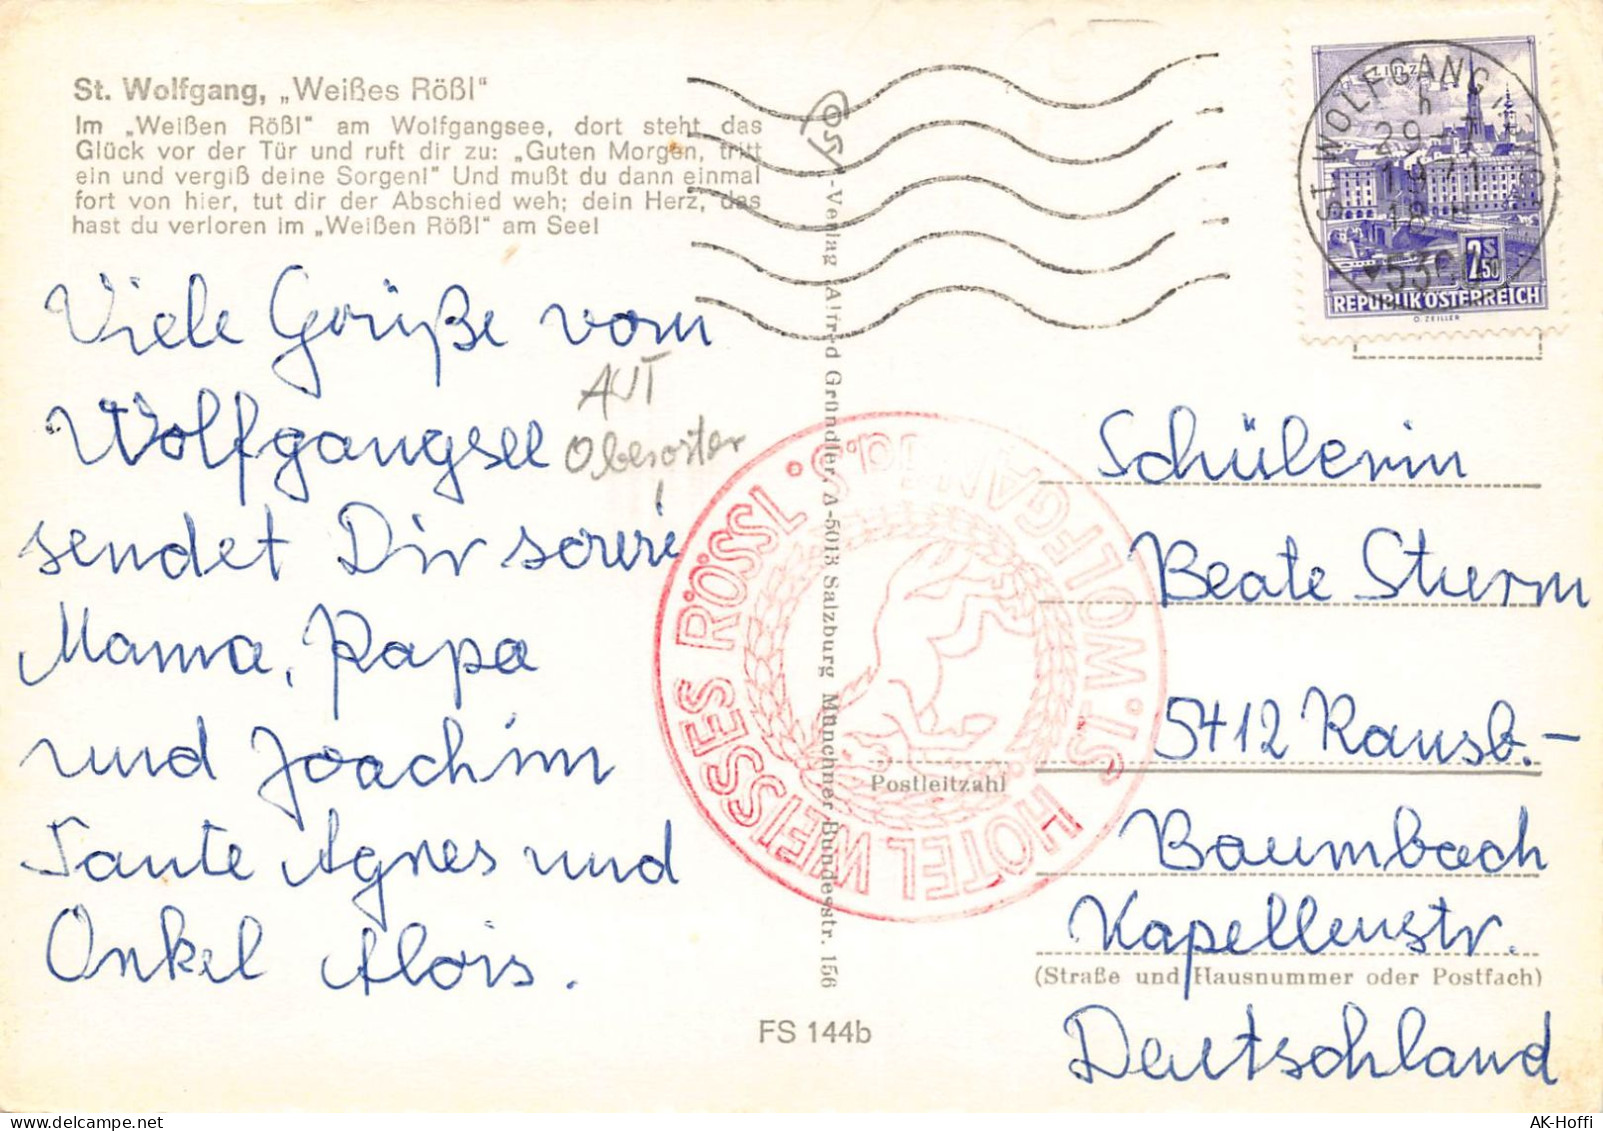 St. Wolfgang, „Weißes Rößl"
Im „Weißen Rößl" am Wolfgangsee, dort steht das
Glück vor der Tür und ruft dir zu: „Guten Morgen, tritt
ein und vergiß deine Sorgen!" Und mußt du dann einmal
fort von hier, tut dir der Abschied weh; dein Herz, das
hast du verloren im „Weißen Rößl" am See!
Viele Grüße vom
Wolfgangsee
sendet Dir sowie
Mama, Papa
und Joachim
Tante Agnes und
Onkel Alois.
AUT
Oberöster
-Verlag Alfred Gründler, A-5013 Salzburg Münchner Bundesstr. 156
FS 144b
HOTEL WEISSES RÖSSL • ST. WOLFGANG
LINZ
2.50 S
REPUBLIK ÖSTERREICH
O. ZEILLER
ST. WOLFGANG
h
29.-7.
1971
18
Schülerin
Beate Sturm
5412 Ransb.-
Postleitzahl
Baumbach
Kapellenstr.
(Straße und Hausnummer oder Postfach)
Deutschland
AK-Hoffi